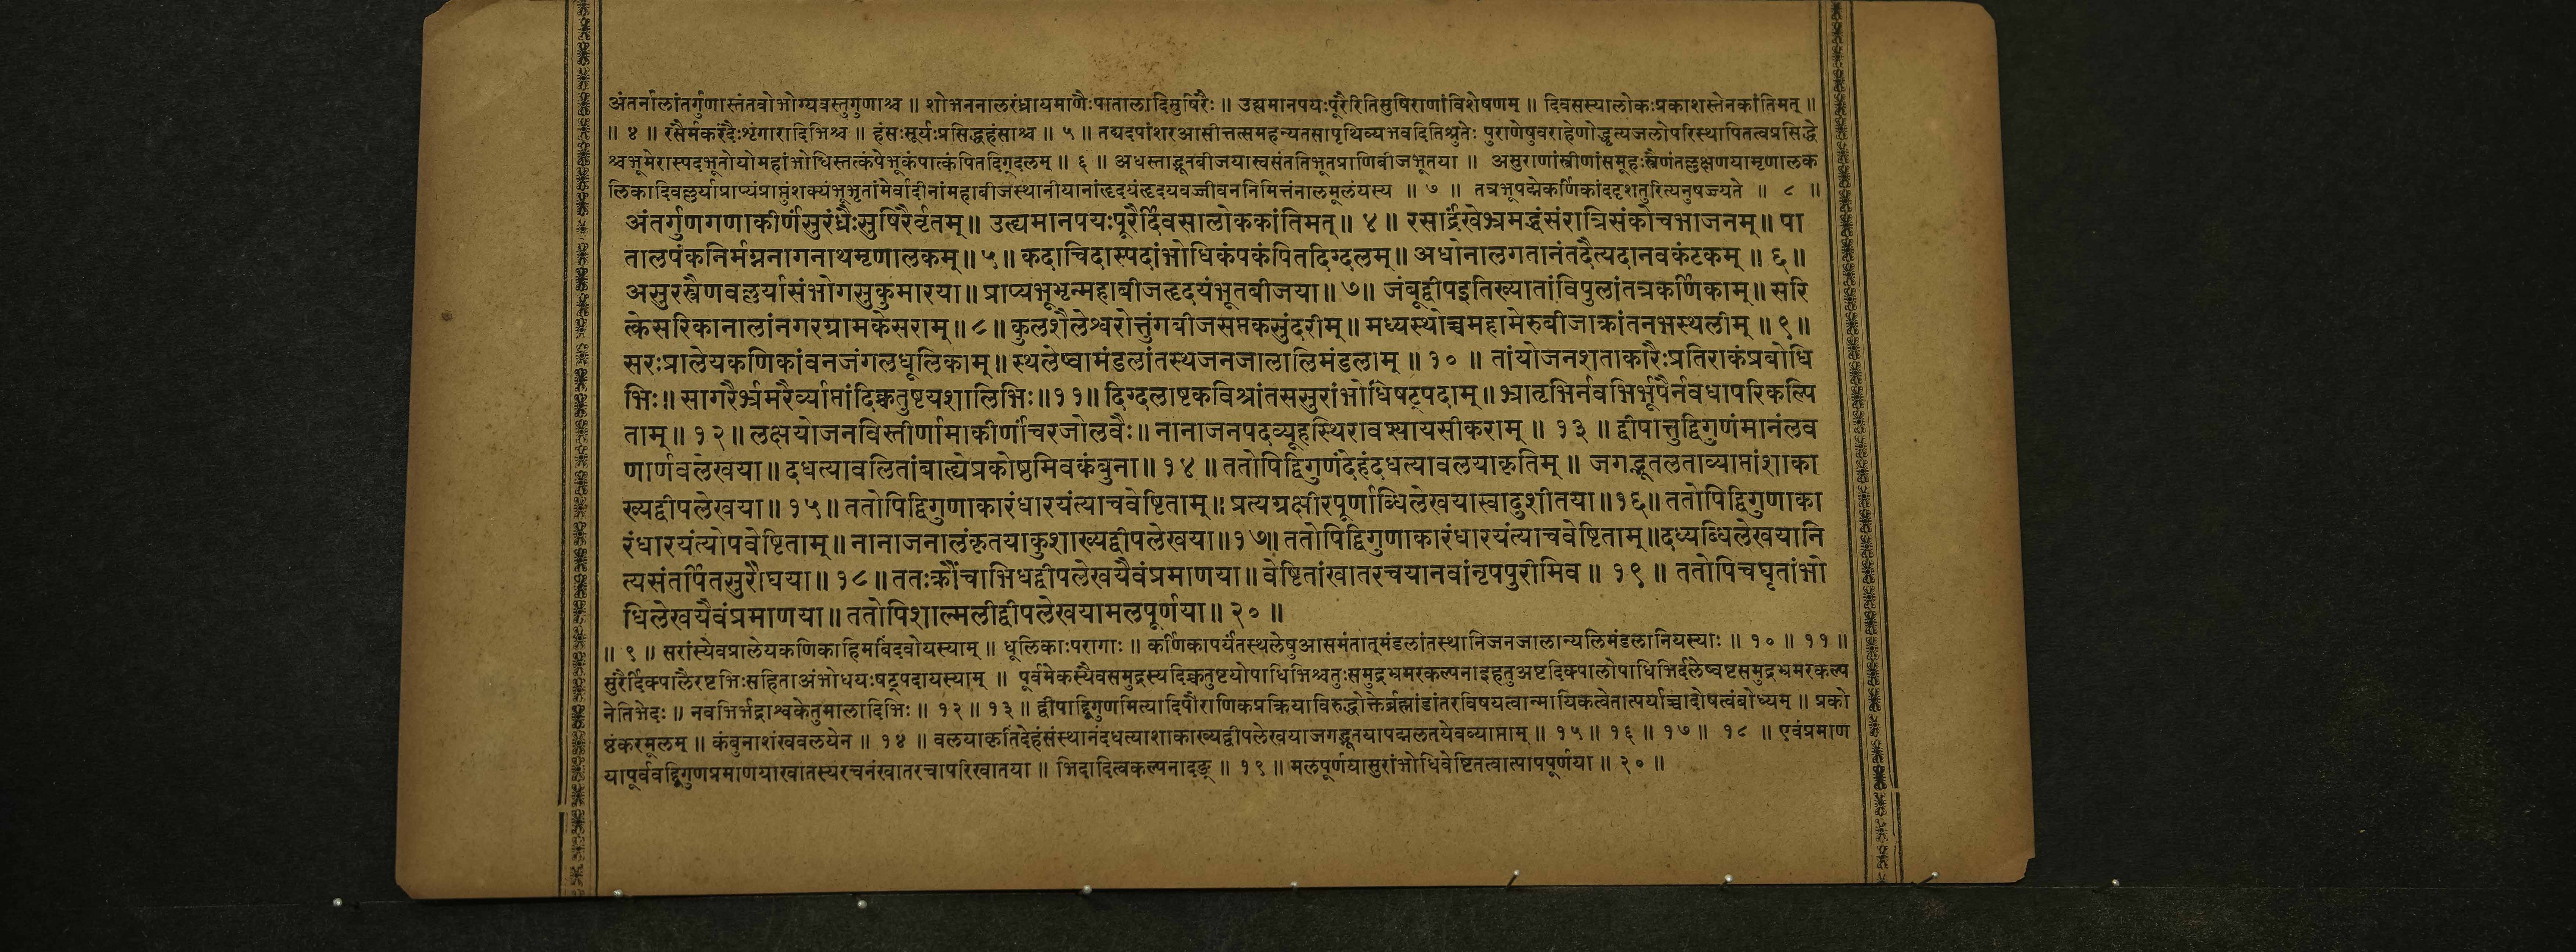 अंतर्नालांतर्गुणास्तंतवोभोग्यवस्तुगुणाश्च ॥ शोभननालरंध्रायमाणैःपातालादिसुषिरैः ॥ उह्यमानपयःपूरैरितिसुषिराणांविशेषणम् ॥ दिवसस्यालोकःप्रकाशस्तेनकांतिमत् ॥
॥ ४ ॥ रसैर्मकरंदैःशृंगारादिभिश्च ॥ हंसःसूर्यःप्रसिद्धहंसाश्च ॥ ५ ॥ तद्यदपांशरआसीत्तत्समहन्यतसापृथिव्यभवदितिश्रुतेः पुराणेषुवराहेणोद्धृत्यजलोपरिस्थापितत्वप्रसिद्धे
श्चभूमेरास्पदभूतोयोमहांभोधिस्तत्कंपेभूकंपात्कंपितदिग्दलम् ॥ ६ ॥ अधस्ताद्भूतबीजयास्वसंततिभूतप्राणिबीजभूतया ॥ असुराणांस्त्रीणांसमूहःस्त्रैणंतल्लक्षणयामृणालक
लिकादिवल्लर्याप्राप्यंप्राप्तुंशक्यंभूभृतांमेर्वादीनांमहाबीजस्थानीयानांहृदयंहृदयवज्जीवननिमित्तंनालमूलंयस्य ॥ ७ ॥ तत्रभूपद्मेकर्णिकांददृशतुरित्यनुषज्यते ॥ ८ ॥
अंतर्गुणगणाकीर्णसुरंध्रैःसुषिरैर्वृतम् ॥ उह्यमानपयःपूरैर्दिवसालोककांतिमत् ॥ ४ ॥ रसार्द्रंखेभ्रमद्धंसंरात्रिसंकोचभाजनम् ॥ पा
तालपंकनिर्मग्ननागनाथमृणालकम् ॥ ५ ॥ कदाचिदास्पदांभोधिकंपकंपितदिग्दलम् ॥ अधोनालगतानंतदैत्यदानवकंटकम् ॥ ६ ॥
असुरस्त्रैणवल्लर्यासंभोगसुकुमारया ॥ प्राप्यभूभृन्महाबीजहृदयंभूतबीजया ॥ ७ ॥ जंबूद्वीपइतिख्यातांविपुलांतत्रकर्णिकाम् ॥ सरि
त्केसरिकानालांनगरग्रामकेसराम् ॥ ८ ॥ कुलशैलेश्वरोत्तुंगबीजसप्तकसुंदरीम् ॥ मध्यस्थोच्चमहामेरुबीजाक्रांतनभस्थलीम् ॥ ९ ॥
सरःप्रालेयकणिकांवनजंगलधूलिकाम् ॥ स्थलेष्वामंडलांतस्थजनजालालिमंडलाम् ॥ १० ॥ तांयोजनशताकारैःप्रतिराकंप्रबोधि
भिः ॥ सागरैर्भ्रमरैर्व्याप्तांदिक्चतुष्टयशालिभिः ॥ ११ ॥ दिग्दलाष्टकविश्रांतससुरांभोधिषट्पदाम् ॥ भ्रातृभिर्नवभिर्भूपैर्नवधापरिकल्पि
ताम् ॥ १२ ॥ लक्षयोजनविस्तीर्णामाकीर्णाचरजोलवैः ॥ नानाजनपदव्यूहस्थिरावश्यायसीकराम् ॥ १३ ॥ द्वीपात्तुद्विगुणंमानंलव
णार्णवलेखया ॥ दधत्यावलितांबाह्येप्रकोष्ठमिवकंबुना ॥ १४ ॥ ततोपिद्विगुणंदेहंदधत्यावलयाकृतिम् ॥ जगद्भूतलताव्याप्तांशाका
ख्यद्वीपलेखया ॥ १५ ॥ ततोपिद्विगुणाकारंधारयंत्याचवेष्टिताम् ॥ प्रत्यग्रक्षीरपूर्णाब्धिलेखयास्वादुशीतया ॥ १६ ॥ ततोपिद्विगुणाका
रंधारयंत्योपवेष्टिताम् ॥ नानाजनालंकृतयाकुशाख्यद्वीपलेखया ॥ १७ ॥ ततोपिद्विगुणाकारंधारयंत्याचवेष्टिताम् ॥ दध्यब्धिलेखयानि
त्यसंतर्पितसुरौघया ॥ १८ ॥ ततःक्रौंचाभिधद्वीपलेखयैवंप्रमाणया ॥ वेष्टितांखातरचयानवांनृपपुरीमिव ॥ १९ ॥ ततोपिचघृतांभो
धिलेखयैवंप्रमाणया ॥ ततोपिशाल्मलीद्वीपलेखयामलपूर्णया ॥ २० ॥
॥ ९ ॥ सरांस्येवप्रालेयकणिकाहिमबिंदवोयस्याम् ॥ धूलिकाःपरागाः ॥ कर्णिकापर्यंतस्थलेषुआसमंतात्मंडलांतस्थानिजनजालान्यलिमंडलानियस्याः ॥ १० ॥ ११ ॥
सुरैर्दिक्पालैरष्टभिःसहिताअंभोधयःषट्पदायस्याम् ॥ पूर्वमेकस्यैवसमुद्रस्यदिक्चतुष्टयोपाधिभिश्चतुःसमुद्रभ्रमरकल्पनाइहतुअष्टदिक्पालोपाधिभिर्दलेष्वष्टसमुद्रभ्रमरकल्प
नेतिभेदः ॥ नवभिर्भद्राश्वकेतुमालादिभिः ॥ १२ ॥ १३ ॥ द्वीपाद्द्विगुणमित्यादिपौराणिकप्रक्रियाविरुद्धोक्तेर्ब्रह्मांडांतरविषयत्वान्मायिकत्वेतात्पर्याच्चादोषत्वंबोध्यम् ॥ प्रको
ष्ठंकरमूलम् ॥ कंबुनाशंखवलयेन ॥ १४ ॥ वलयाकृतिंदेहंसंस्थानंदधत्याशाकाख्यद्वीपलेखयाजगद्भूतयापद्मलतयेवव्याप्ताम् ॥ १५ ॥ १६ ॥ १७ ॥ १८ ॥ एवंप्रमाण
यापूर्ववद्द्विगुणप्रमाणयाखातस्यरचनंखातरचापरिखातया ॥ भिदादित्वकल्पनादङ् ॥ १९ ॥ मलपूर्णयासुरांभोधिवेष्टितत्वात्पापपूर्णया ॥ २० ॥